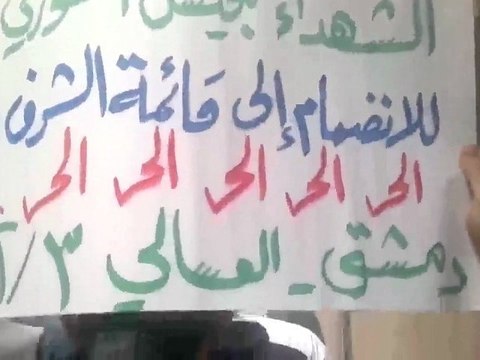 الشهداء بجيش السوري
للانضمام إلى قائمة الشرف
الحر الحر الحر الحر الحر
دمشق - العسالي ٣/